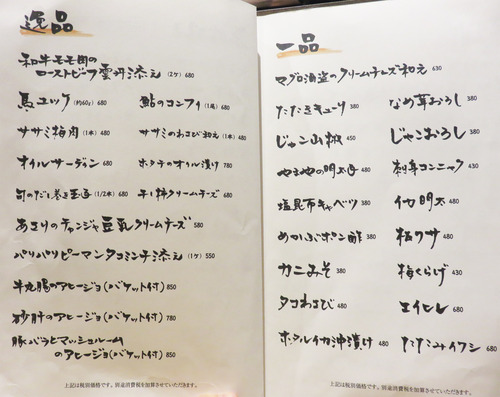 逸品
和牛モモ肉の
ローストビーフ雲丹添え (2ケ) 680
馬ユッケ (約60g) 680
鮎のコンフィ (1尾) 680
ササミ梅肉 (1本) 480
ササミのわさび和え (1本) 480
オイルサーディン 680
ホタテのオイル漬け 780
旬のだし巻き玉子 (1/2本) 680
干し柿クリームチーズ 680
あさりのチャンジャ豆乳クリームチーズ 580
パリパリピーマンタコミンチ添え (1ケ) 550
牛丸腸のアヒージョ(バケット付) 850
砂肝のアヒージョ(バケット付) 780
豚バラとマッシュルーム
のアヒージョ(バケット付) 850
上記は税別価格です。別途消費税を加算させていただきます。
一品
マグロ酒盗のクリームチーズ和え 630
たたきキューリ 380
なめ茸おろし 380
じゃん山椒 450
じゃこおろし 380
やまやの明太子 480
刺身コンニャク 430
塩昆布キャベツ 380
イカ明太 480
めかぶポン酢 380
梅クサ 480
カニみそ 380
梅くらげ 430
タコわさび 480
エイヒレ 680
ホタルイカ沖漬け 480
たたみイワシ 680
上記は税別価格です。別途消費税を加算させていただきます。